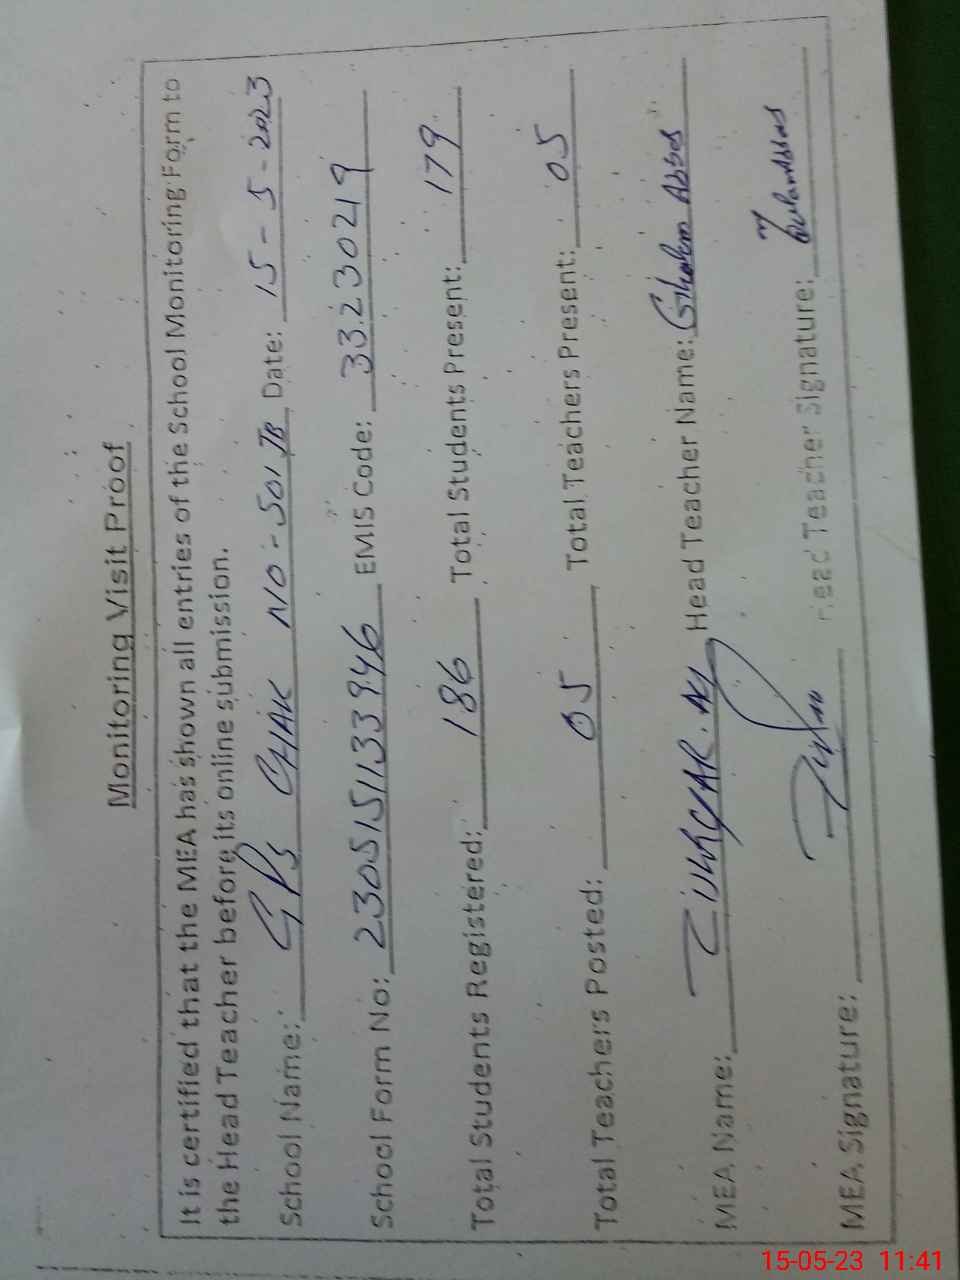 Monitoring Visit Proof
It is certified that the MEA has shown all entries of the School Monitoring Form to
the Head Teacher before its online submission.
School Name: GPS CHAK NO - 501 JB Date: 15 - 5 - 2023
School Form No: 2305151133946 EMIS Code: 33230219
Total Students Registered: 186 Total Students Present: 179
Total Teachers Posted: 05 Total Teachers Present: 05
MEA Name: Head Teacher Name: Ghulam Abbas
MEA Signature: Head Teacher Signature:
15-05-23 11:41